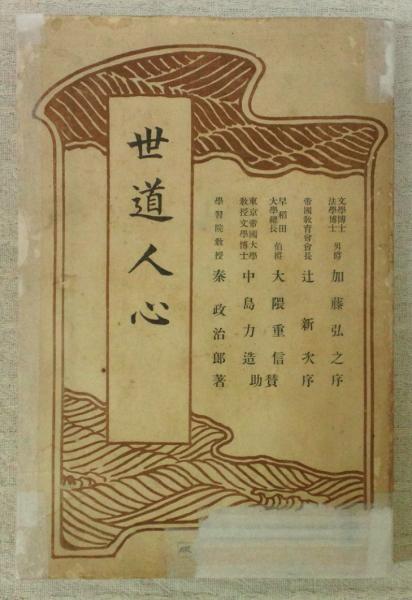 文學博士
法學博士 男爵 加藤弘之序
帝國敎育會會長 辻新次序
早稻田
大學總長 伯爵 大隈重信賛
東京帝國大學
敎授文學博士 中島力造助
學習院敎授 秦政治郎著
世道人心